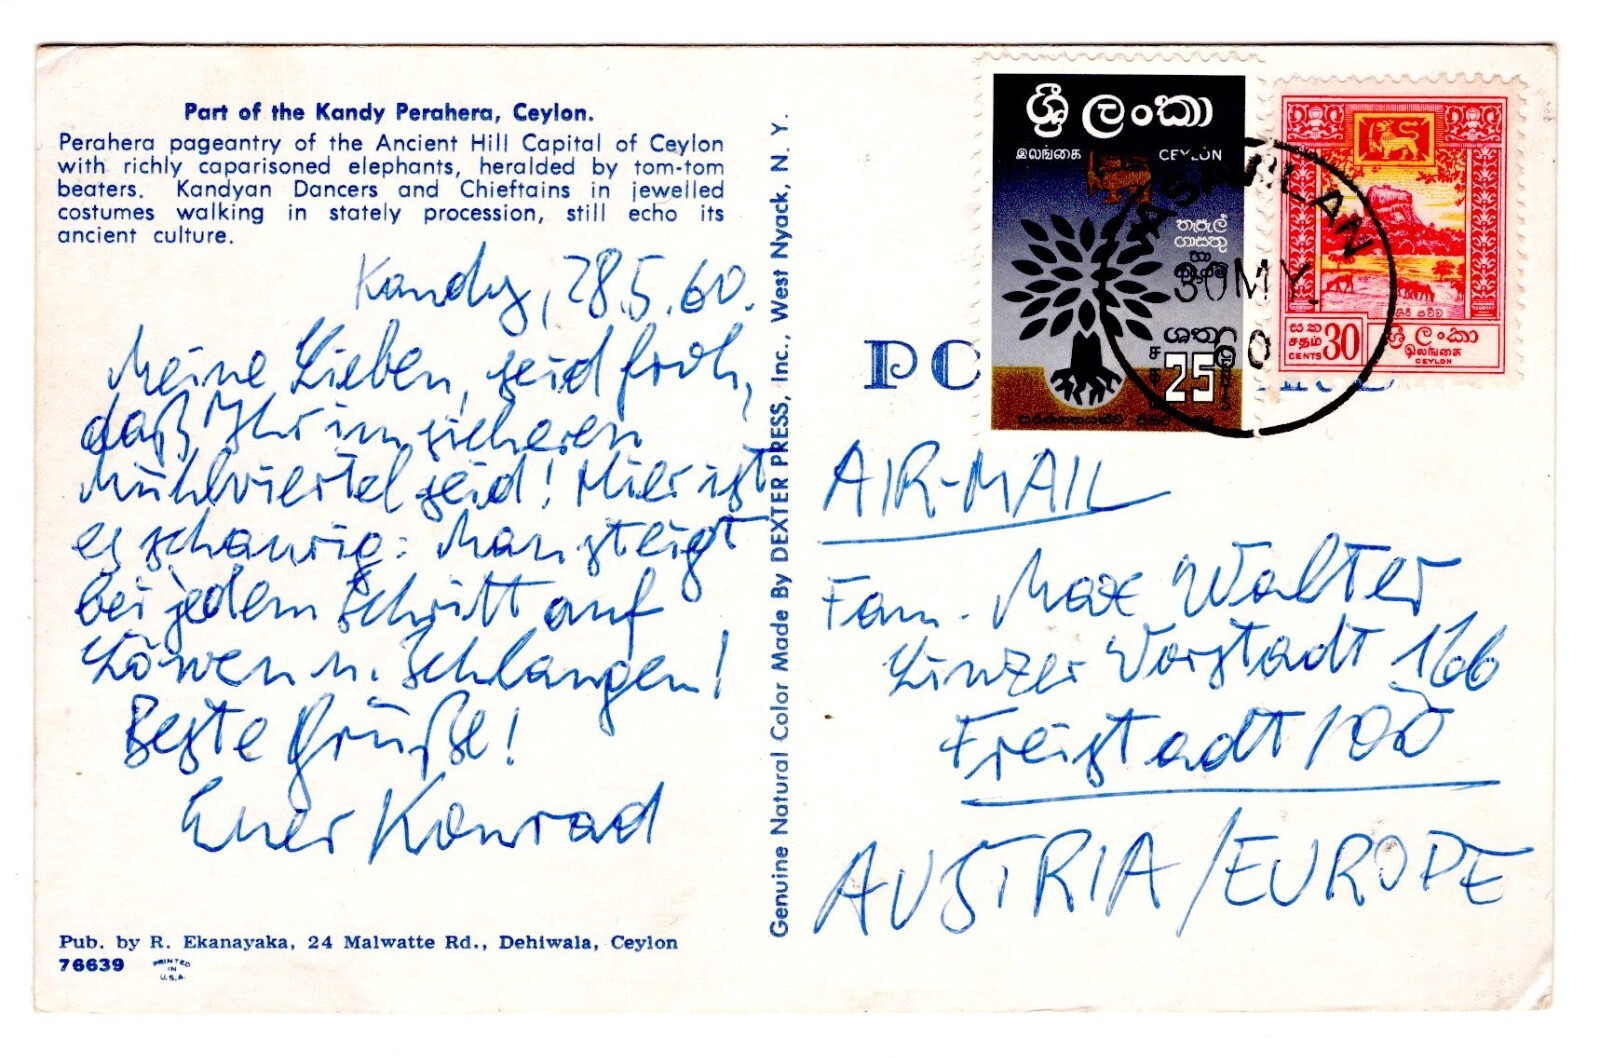 Part of the Kandy Perahera, Ceylon.
Perahera pageantry of the Ancient Hill Capital of Ceylon
with richly caparisoned elephants, heralded by tom-tom
beaters. Kandyan Dancers and Chieftains in jewelled
costumes walking in stately procession, still echo its
ancient culture.
Kandy, 28.5.60.
Meine Lieben, seid froh,
daß Ihr im sicheren
Mühlviertel seid! Hier ist
es schaurig: Man steigt
bei jedem Schritt auf
Löwen u. Schlangen!
Beste Grüße!
Euer Konrad
Pub. by R. Ekanayaka, 24 Malwatte Rd., Dehiwala, Ceylon
76639 PRINTED
IN
U.S.A.
Genuine Natural Color Made By DEXTER PRESS, Inc., West Nyack, N. Y.
ශ්‍රී ලංකා
இலங்கை CEYLON
තැපැල්
ගාස්තු
හා
ශත
25
ශ්‍රී ලංකා
இலங்கை
CEYLON
සත
சதம்
CENTS 30
30 MY.
60
PO
AIR-MAIL
Fam. Max Walter
Linzer Vorstadt 166
Freistadt / OÖ
AUSTRIA / EUROPE